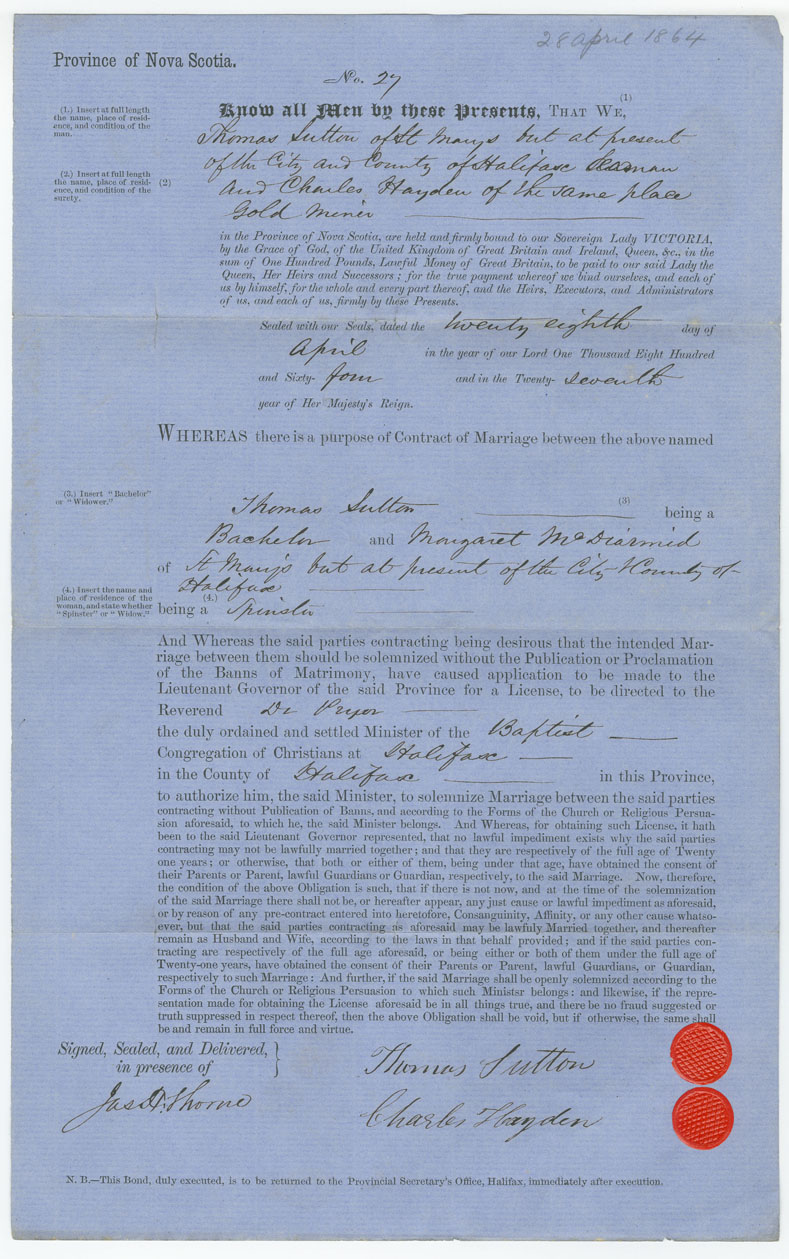 28 April 1864
Province of Nova Scotia.
No. 27
(1.) Insert at full length
the name, place of resid-
ence, and condition of the
man.
Know all Men by these Presents, THAT WE, (1)
Thomas Sutton of St Marys but at present
of the City and County of Halifax Seaman
(2.) Insert at full length
the name, place of resid-
ence, and condition of the
surety.
(2) And Charles Hayden of the same place
Gold Miner
in the Province of Nova Scotia, are held and firmly bound to our Sovereign Lady VICTORIA,
by the Grace of God, of the United Kingdom of Great Britain and Ireland, Queen, &c., in the
sum of One Hundred Pounds, Lawful Money of Great Britain, to be paid to our said Lady the
Queen, Her Heirs and Successors; for the true payment whereof we bind ourselves, and each of
us by himself, for the whole and every part thereof, and the Heirs, Executors, and Administrators
of us, and each of us, firmly by these Presents.
Sealed with our Seals, dated the twenty eighth day of
April in the year of our Lord One Thousand Eight Hundred
and Sixty- four and in the Twenty- seventh
year of Her Majesty's Reign.
WHEREAS there is a purpose of Contract of Marriage between the above named
(3.) Insert "Bachelor"
or "Widower."
Thomas Sutton (3) being a
Bachelor and Margaret McDiarmid
of St Marys but at present of the City & County of
Halifax
(4.) Insert the name and
place of residence of the
woman, and state whether
"Spinster" or "Widow."
(4.)
being a Spinster
And Whereas the said parties contracting being desirous that the intended Mar-
riage between them should be solemnized without the Publication or Proclamation
of the Banns of Matrimony, have caused application to be made to the
Lieutenant Governor of the said Province for a License, to be directed to the
Reverend Dr Pryor
the duly ordained and settled Minister of the Baptist
Congregation of Christians at Halifax
in the County of Halifax in this Province,
to authorize him, the said Minister, to solemnize Marriage between the said parties
contracting without Publication of Banns, and according to the Forms of the Church or Religious Persua-
sion aforesaid, to which he, the said Minister belongs. And Whereas, for obtaining such License, it hath
been to the said Lieutenant Governor represented, that no lawful impediment exists why the said parties
contracting may not be lawfully married together; and that they are respectively of the full age of Twenty
one years; or otherwise, that both or either of them, being under that age, have obtained the consent of
their Parents or Parent, lawful Guardians or Guardian, respectively, to the said Marriage. Now, therefore,
the condition of the above Obligation is such, that if there is not now, and at the time of the solemnization
of the said Marriage there shall not be, or hereafter appear, any just cause or lawful impediment as aforesaid,
or by reason of any pre-contract entered into heretofore, Consanguinity, Affinity, or any other cause whatso-
ever, but that the said parties contracting as aforesaid may be lawfuly Married together, and thereafter
remain as Husband and Wife, according to the laws in that behalf provided; and if the said parties con-
tracting are respectively of the full age aforesaid, or being either or both of them under the full age of
Twenty-one years, have obtained the consent of their Parents or Parent, lawful Guardians, or Guardian,
respectively to such Marriage: And further, if the said Marriage shall be openly solemnized according to the
Forms of the Church or Religious Persuasion to which such Ministsr belongs: and likewise, if the repre-
sentation made for obtaining the License aforesaid be in all things true, and there be no fraud suggested or
truth suppressed in respect thereof, then the above Obligation shall be void, but if otherwise, the same shall
be and remain in full force and virtue.
Signed, Sealed, and Delivered,
in presence of
Thomas Sutton
Jas H. Thorne
Charles Hayden
N. B.—This Bond, duly executed, is to be returned to the Provincial Secretary's Office, Halifax, immediately after execution.